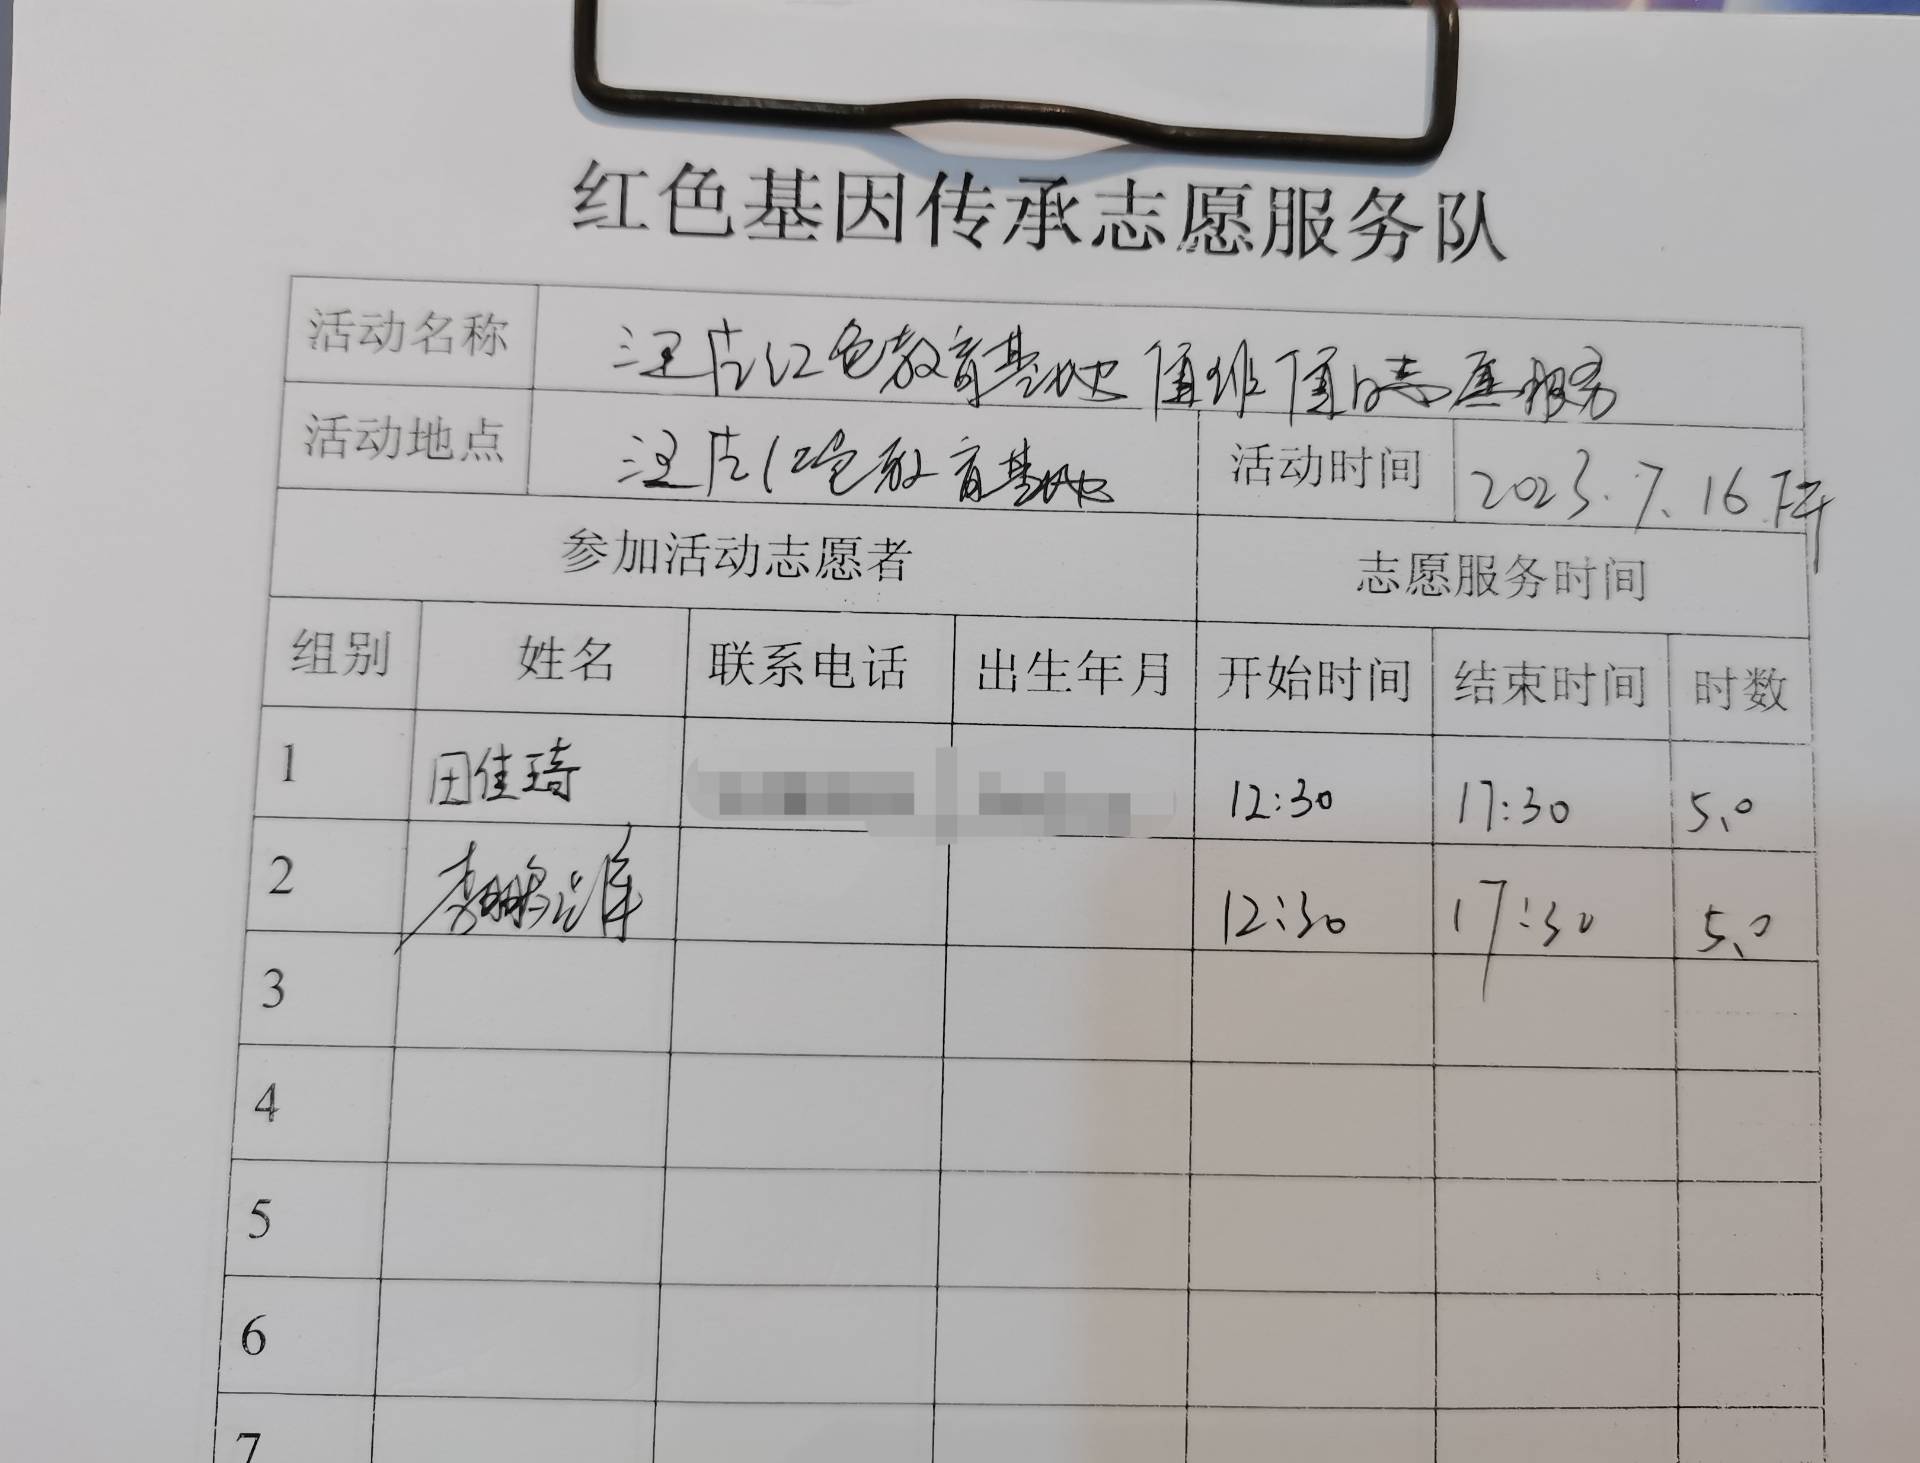 红色基因传承志愿服务队
活动名称 汪店红色教育基地值班值日志愿服务
活动地点 汪店红色教育基地 活动时间 2023.7.16下午
参加活动志愿者 志愿服务时间
组别 姓名 联系电话 出生年月 开始时间 结束时间 时数
1 田佳琦 12:30 17:30 5.0
2 李鹏 12:30 17:30 5.0
3
4
5
6
7